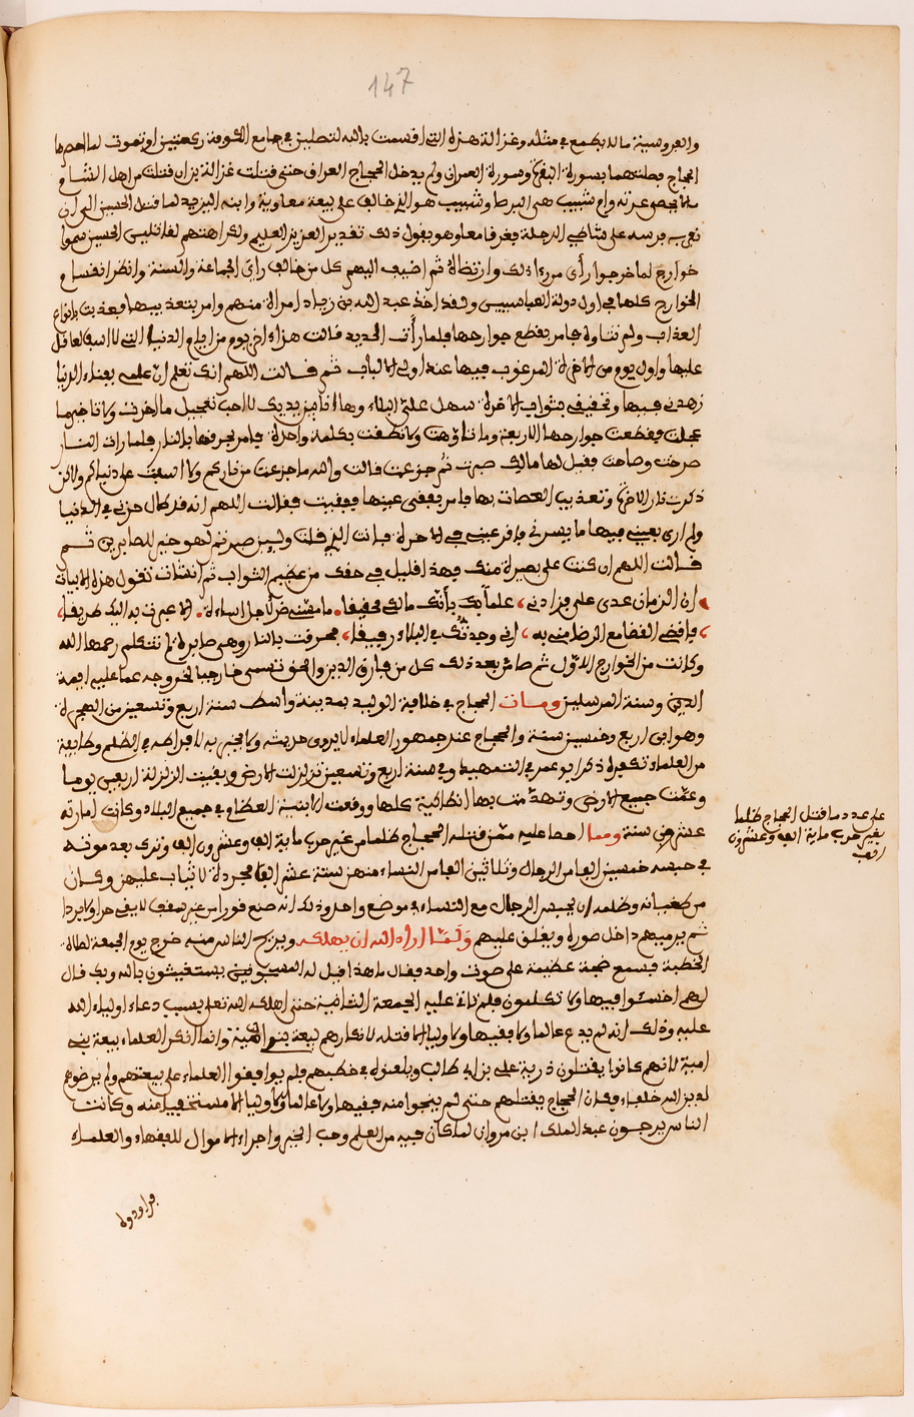 147
والفروسية ما لا يطمع في مثله وغزالة هذه التي اقسمت بالله لتصلين في جامع الكوفة ركعتين او تموت لما احصرها
الحجاج فصلتهما بسورة البقرة وسورة ال عمران ولم يدخل الحجاج العراق حتى قتلت غزالة بزان قتلت من اهل الشام
ما لا يحصى عدته وام شبيب هي البرط وشبيب هو الذي خالف على بيعة معاوية وابنه اليزيد لما قتل الحسين الى ان
نفر به فرسه على شاطي الدجلة فغرق معا وهو يقول ذلك تقدير العزيز العليم ولكراهتهم لقاتلي الحسين سموا
خوارج لما خرجوا رأى من رءا ذلك وارتضاه ثم اضيف اليهم كل من خالف رأي الجماعة والسنة وانظر انقسام
الخوارج كلها في اول دولة العباسيين ولقد اخذ عبد الله بن زياد امراة منهم وامر بتعذيبها فعذبت بانواع
العذاب ولم تتاوه فامر بقطع جوارحها فلما رأت الحديد قالت هذا اخر يوم من ايام الدنيا التي لا اسف لعاقل
عليها واول يوم من الاخرة المرغوب فيها عند اولي الالباب ثم قالت اللهم انك تعلم ان علمي بفناء الدنيا
زهدني فيها وتحقيقي بثواب الاخرة سهل علي البلاء وها انا بين يديك لا احب تعجيل ما اخرت ولا تاخير ما
عجلت فقطعت جوارحها الاربعة وما تاوهت ولا نطقت بكلمة واحدة فامر بحرقها بالنار فلما رات النار
صرخت وصاحت فقيل لها مالك صبرت ثم جزعت قالت والله ما جزعت من ناركم ولا اسفت على دنياكم ولاكن
ذكرت نار الاخرة وتعذيب العصات بها فامر بفقي عينها ففقيت فقالت اللهم انه قد طال حزني في الدنيا
ولم ارى بعيني فيها ما يسرني فاقر عيني في الاخرة فانت الذي قلت ولين صبرتم لهو خير للصابرين ثم
قالت اللهم ان كنت على بصيرة منك فهذا قليل في حقك من عظيم الثواب ثم انشات تقول هذه الابيات
ان الزمان عدى علي فزادني، علما بك بأنك مالك حقيقا. ما مسني ضر لاجل اساءة. الا عبرت به اليك طريقا،
فافض الفضا مع الرضا مني به، اني وجدتك في البلاء رفيقا، فحرقت بالنار وهي صابرة لم تتكلم رحمها الله
وكانت من الخوارج الاول ثم صار بعد ذلك كل من فارق الدين والحق تسمى خارجيا لخروجه عما عليه ايمة
الدين وسنة المرسلين ومات الحجاج في خلافة الوليد بمدينة واسط سنة اربع وتسعين من الهجرة
وهو ابن اربع وخمسين سنة والحجاج عند جمهور العلماء لا يروى حديثه ولا يخبر به لافراطه في الظلم وطايفة
من العلماء تكفره ذكر ابو عمر في التمهيد وفي سنة اربع وتسعين تزلزلت الارض وبقيت الزلزلة اربعين يوما
وعمت جميع الارض وتهدمت بها انطاكية كلها ووقعت الابنية العظام في جميع البلاد وكانت امارته
عشرين سنة ومما احصا عليه ممن قتله الحجاج ظلما من غير حرب ماية الف وعشرون الف وترى بعد موته
في حبسه خمسين الفا من الرجال وثلاثين الفا من النساء منهن ستة عشر الفا مجردة لا ثياب عليهن وكان
من طغيانه وظلمه ان يحبس الرجال مع النساء في موضع واحد وذلك انه صنع قوراس غير سقف لا يقي حرا ولا بردا
ثم يرميهم داخل سوره ويغلق عليهم ولما اراد الله ان يهلكه ويريح الناس منه خرج يوم الجمعة لصلاة
الخطبة فسمع ضجة عظيمة على صوت واحد فقال ما هذا قيل له المسجونين يستغيثون بالله وبك قال
لهم اخسئوا فيها ولا تكلمون فلم تات عليه الجمعة الثانية حتى اهلكه الله تعلى بسبب دعاء اولياء الله
عليه وذلك انه لم يدع عالما ولا فقيها ولا وليا الا قتله لانكارهم لبيعة بنو امية وانما انكر العلماء بيعة بني
امية لانهم كانوا يقتلون ذرية علي بن ابي طالب ويلعنوه في خطبهم فلم يوافقوا العلماء على بيعتهم ولم يرضوهم
لدين الله خلفاء فكان الحجاج يقتلهم حتى لم ينجوا منه فقيها ولا عالما ولا وليا الا مستخفيا عنه وكانت
الناس يرجون عبد الملك ابن مروان لما كان فيه من العلم وحب الخير واجراء الاموال للفقهاء والعلماء
على عدد ما قتل الحجاج ظلما
بغير حرب ماية الف وعشرون
الف